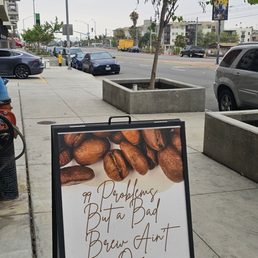 99 Problems
But a Bad
Brew Ain't